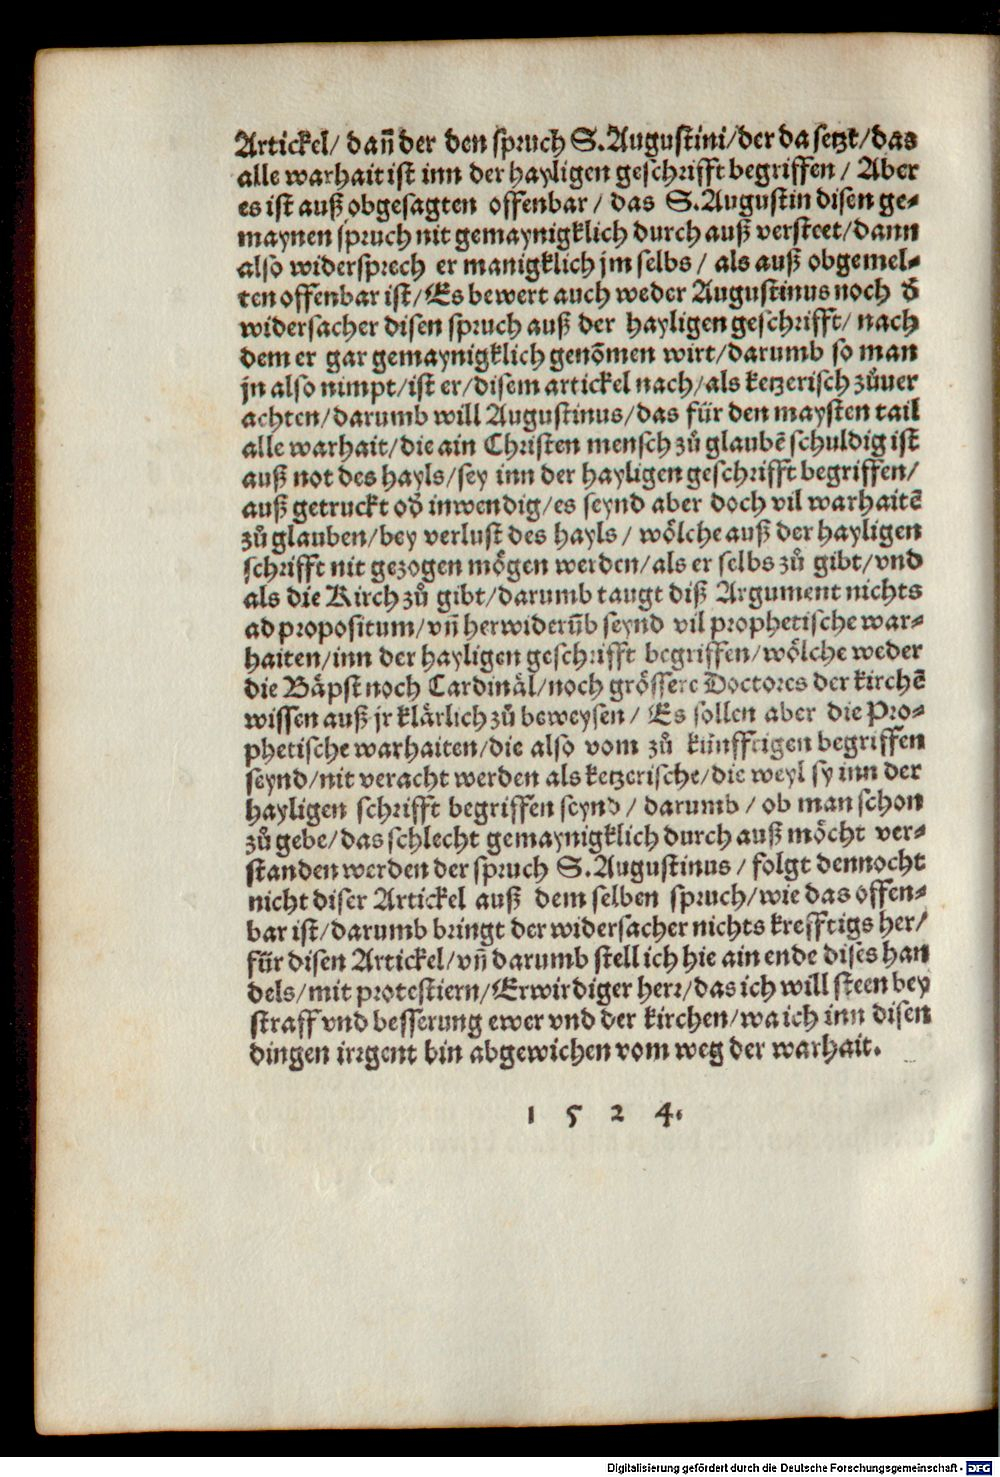 Artickel/ dañ der den spruch S. Augustini/der da setzt/das
alle warhait ist inn der hayligen geschrifft begriffen / Aber
es ist auß obgesagten offenbar / das S. Augustin disen ge⸗
maynen spruch nit gemaynigklich durch auß versteet/dann
also widersprech er manigklich jm selbs / als auß obgemel⸗
ten offenbar ist/Es bewert auch weder Augustinus noch d̄
widersacher disen spruch auß der hayligen geschrifft/ nach
dem er gar gemaynigklich genōmen wirt/darumb so man
jn also nimpt/ist er/disem artickel nach/als ketzerisch zůuer
achten/darumb will Augustinus/das für den maysten tail
alle warhait/die ain Christen mensch zů glaubē schuldig ist
auß not des hayls/sey inn der hayligen geschrifft begriffen/
auß getruckt od̄ inwendig/es seynd aber doch vil warhaitē
zů glauben/bey verlust des hayls / wölche auß der hayligen
schrifft nit gezogen mögen werden/als er selbs zů gibt/vnd
als die Kirch zů gibt/darumb taugt diß Argument nichts
ad propositum/vñ herwiderūb seynd vil prophetische war⸗
haiten/inn der hayligen geschrifft begriffen/wölche weder
die Bäpst noch Cardinäl/noch grössere Doctores der kirchē
wissen auß jr klärlich zů beweysen / Es sollen aber die Pro⸗
phetische warhaiten/die also vom zů künfftigen begriffen
seynd/nit veracht werden als ketzerische/die weyl sy inn der
hayligen schrifft begriffen seynd / darumb / ob man schon
zů gebe/das schlecht gemaynigklich durch auß möcht ver⸗
standen werden der spruch S. Augustinus / folgt dennocht
nicht diser Artickel auß dem selben spruch/wie das offen⸗
bar ist/darumb bringt der widersacher nichts krefftigs her/
für disen Artickel/vñ darumb stell ich hie ain ende dises han
dels/mit protestiern/Erwirdiger herr/das ich will steen bey
straff vnd besserung ewer vnd der kirchen/wa ich inn disen
dingen irrgent bin abgewichen vom weg der warhait.
1 5 2 4.
Digitalisierung gefördert durch die Deutsche Forschungsgemeinschaft - DFG